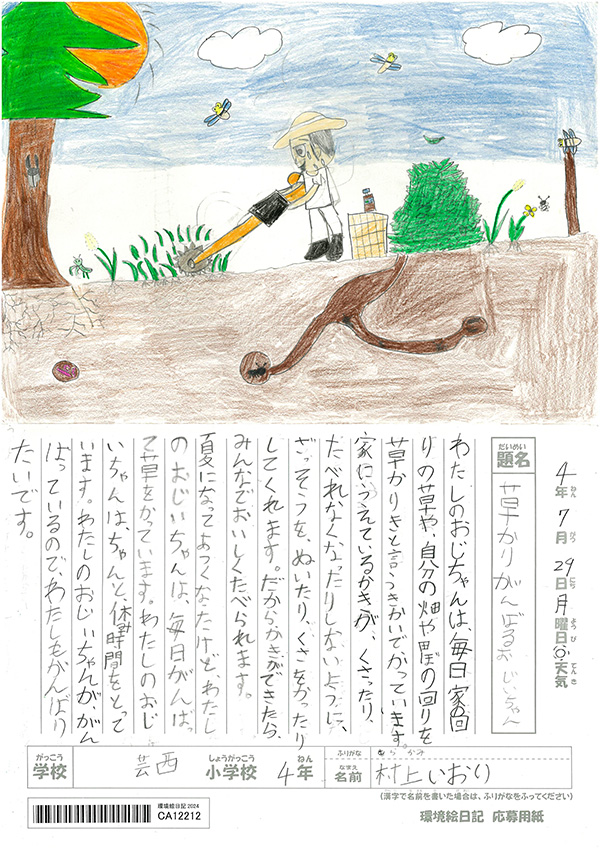 4年7月29日月曜日 天気
ねん がつ にち ようび てんき
だいめい
題名
草かりがんばるおじいちゃん
わたしのおじちゃんは、毎日家の回
りの草や、自分の畑や田ぼの回りを
草かりきと言うきかいでかっています。
家にうえているかきが、くさったり、
たべれなくなったりしないように、
ざっそうを、ぬいたり、くさをかったり
してくれます。だからかきができたら、
みんなでおいしくたべられます。
夏になってあつくなたけど、わたし
のおじいちゃんは、毎日がんばっ
て草をかっています。わたしのおじ
いちゃんは、ちゃんと、休み時間をとって
います。わたしのおじいちゃんが、がん
ばっているので、わたしもがんばり
たいです。
がっこう しょうがっこう ねん ふりがな むらかみ
学校 芸西 小学校 4年 なまえ 名前 村上いおり
(漢字で名前を書いた場合は、ふりがなをふってください)
環境絵日記 2024
CA12212
環境絵日記 応募用紙